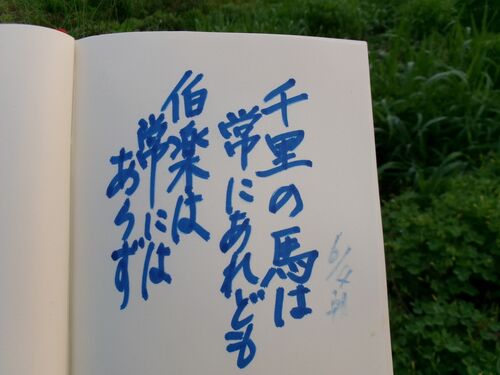 6/4朝
千里の馬は
常にあれども
伯楽は
常には
あらず